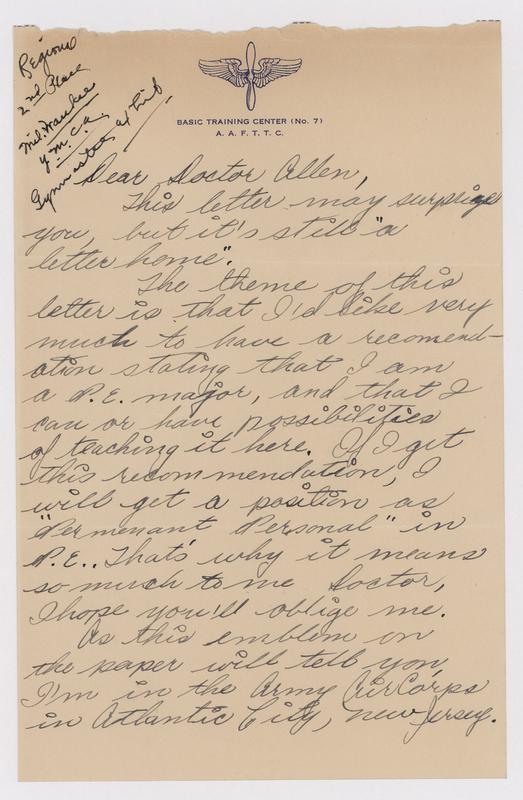 Regional
2nd Place
Mil. Frankie
Y.M.C.A.
Gymnastics
BASIC TRAINING CENTER (No. 7)
A. A. F. T. T. C.
Dear Doctor Allen,
This letter may surprise
you, but it's still "a
letter home".
The theme of this
letter is that I'd like very
much to have a recomend-
ation stating that I am
a P.E. major, and that I
can or have possibilities
of teaching it here. If I get
this recommendation, I
will get a position as
"Permenant Personal" in
P.E.. That's why it means
so much to me Doctor,
I hope you'll oblige me.
As this emblem on
the paper will tell you,
I'm in the Army Air Corps
in Atlantic City, New Jersey.